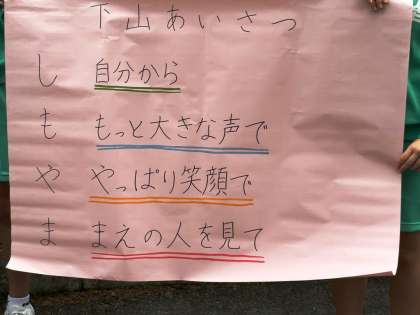 下山あいさつ
し 自分から
も もっと大きな声で
や やっぱり笑顔で
ま まえの人を見て